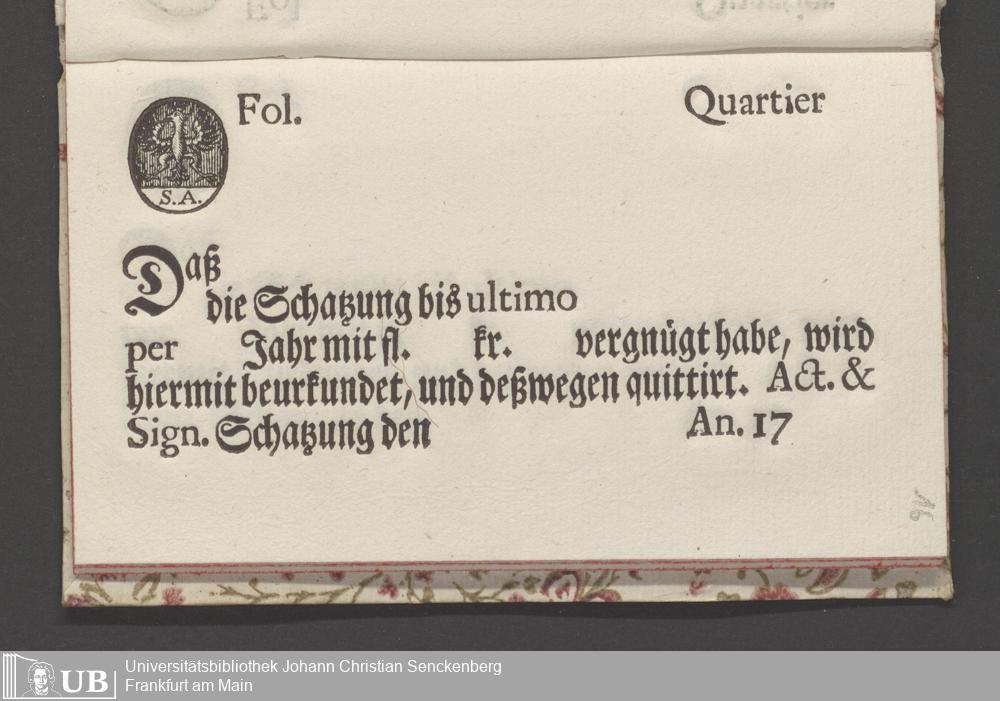 Fol. Quartier
S.A.
Daß
die Schatzung bis ultimo
per Jahr mit fl. kr. vergnügt habe, wird
hiermit beurkundet, und deßwegen quittirt. Act. &
Sign. Schatzung den An. 17
UB
Universitätsbibliothek Johann Christian Senckenberg
Frankfurt am Main